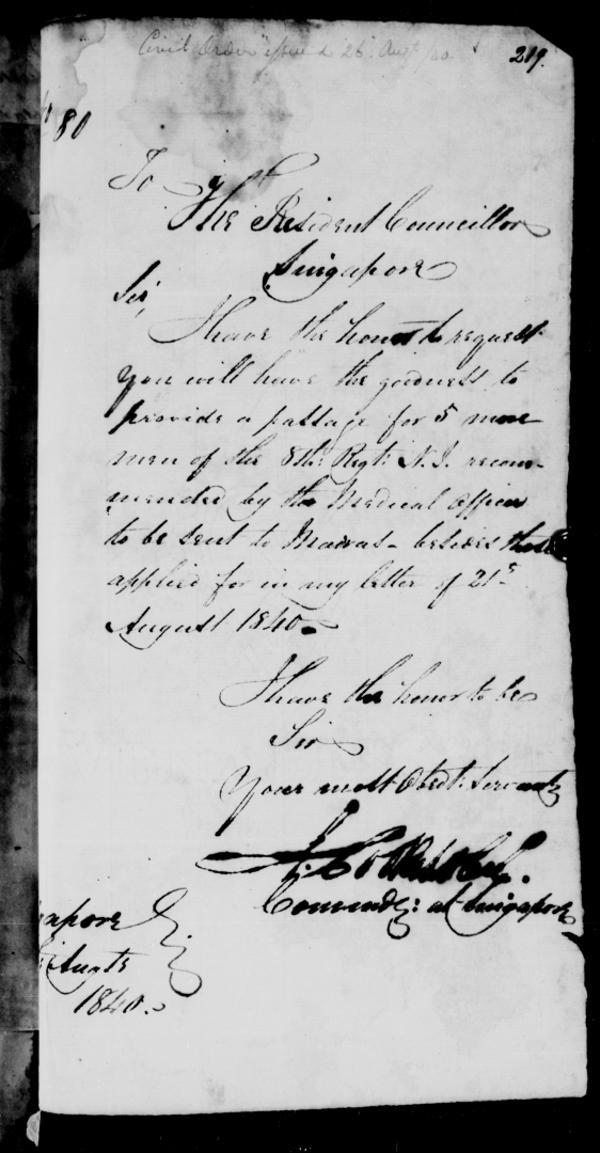 Civil Order issued 26 Augt /40
219.
80
To
The Resident Councillor
Singapore
Sir,
I have the honor to request
you will have the goodness to
provide a passage for 5 more
men of the 8th Regt. N.I. recom-
mended by the Medical Officer
to be sent to Madras - besides those
applied for in my letter of 21st
August 1840
I have the honor to be
Sir
Your most Obedt. Servant
Commdg: at Singapore
apore
Augt
1840